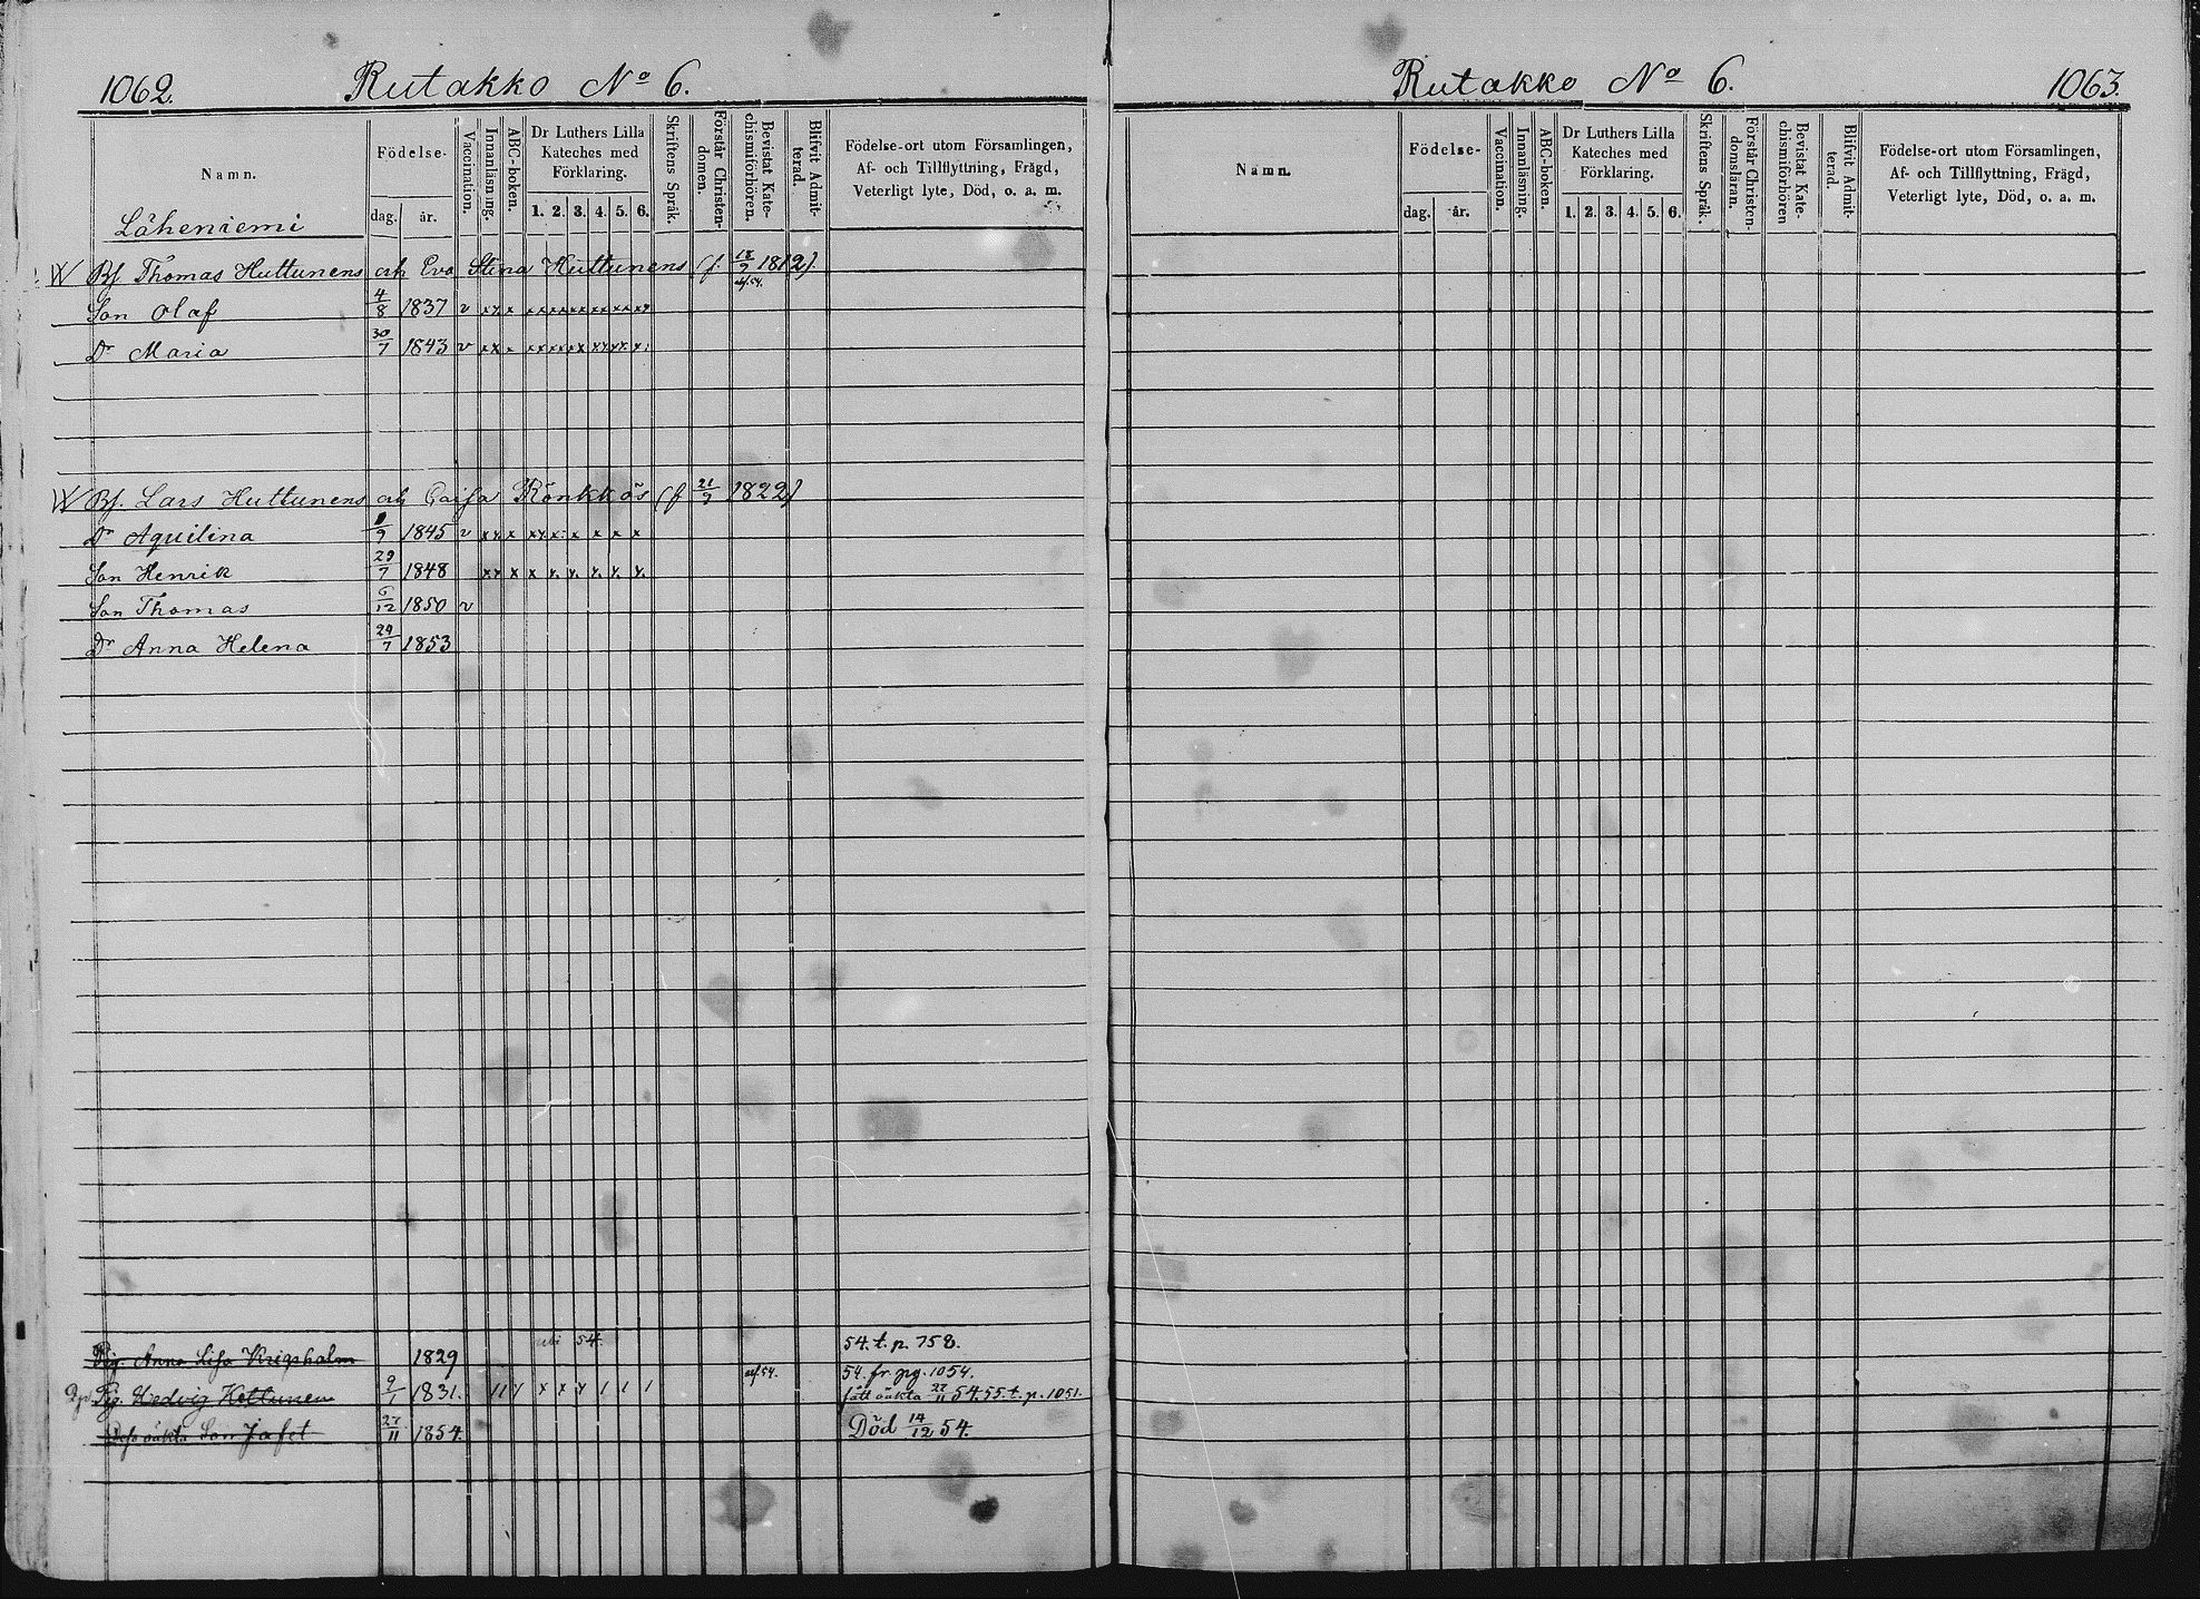 1062. Rutakko No 6.
Namn.
Födelse-
dag. år.
Vaccination.
Innanläsning.
ABC-boken.
Dr Luthers Lilla
Kateches med
Förklaring.
1. 2. 3. 4. 5. 6.
Skriftens Språk.
Förstår Christen-
domen.
Bevistat Kate-
chismiförhören.
Blifvit Admit-
terad.
Födelse-ort utom Församlingen,
Af- och Tillflyttning, Frägd,
Veterligt lyte, Död, o. a. m.
Läheniemi
Bf. Thomas Huttunens och Eva Stina Huttunens (f. 18/9 1812).
Son Olaf 4/8 1837 v xx x xx xx xx xx xx xx
Dr Maria 30/7 1843 v xx x xx xx xx xx xx x
Bf. Lars Huttunens och Caisa Rönkkös (f 21/9 1822)
Dr Aquilina 1/9 1845 v xx x xx x x x x x
Son Henrik 29/7 1848 xx x x x x x x x
Son Thomas 6/12 1850 v
Dr Anna Helena 29/7 1853
Pig. Anna Lisa Krigsholm 1829 54. 54. t. p. 758.
54. fr. pg. 1054.
Pig. Hedvig Kettunen 9/1 1831. fått oäkta 27/11 54. 55. t. p. 1051.
Dess oäkta Son Jafet 27/11 1854. Död 14/12 54.
Rutakko No 6. 1063.
Namn.
Födelse-
dag. år.
Vaccination.
Innanläsning.
ABC-boken.
Dr Luthers Lilla
Kateches med
Förklaring.
1. 2. 3. 4. 5. 6.
Skriftens Språk.
Förstår Christen-
domsläran.
Bevistat Kate-
chismiförhören
Blifvit Admit-
terad.
Födelse-ort utom Församlingen,
Af- och Tillflyttning, Frägd,
Veterligt lyte, Död, o. a. m.